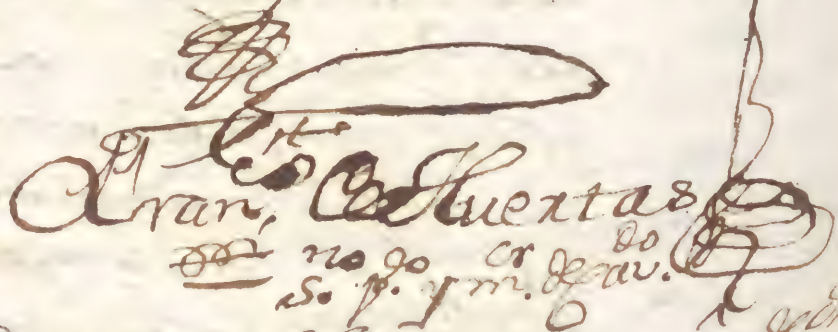 Fran, de Huertas
S.no p.co y m.or de cav.do